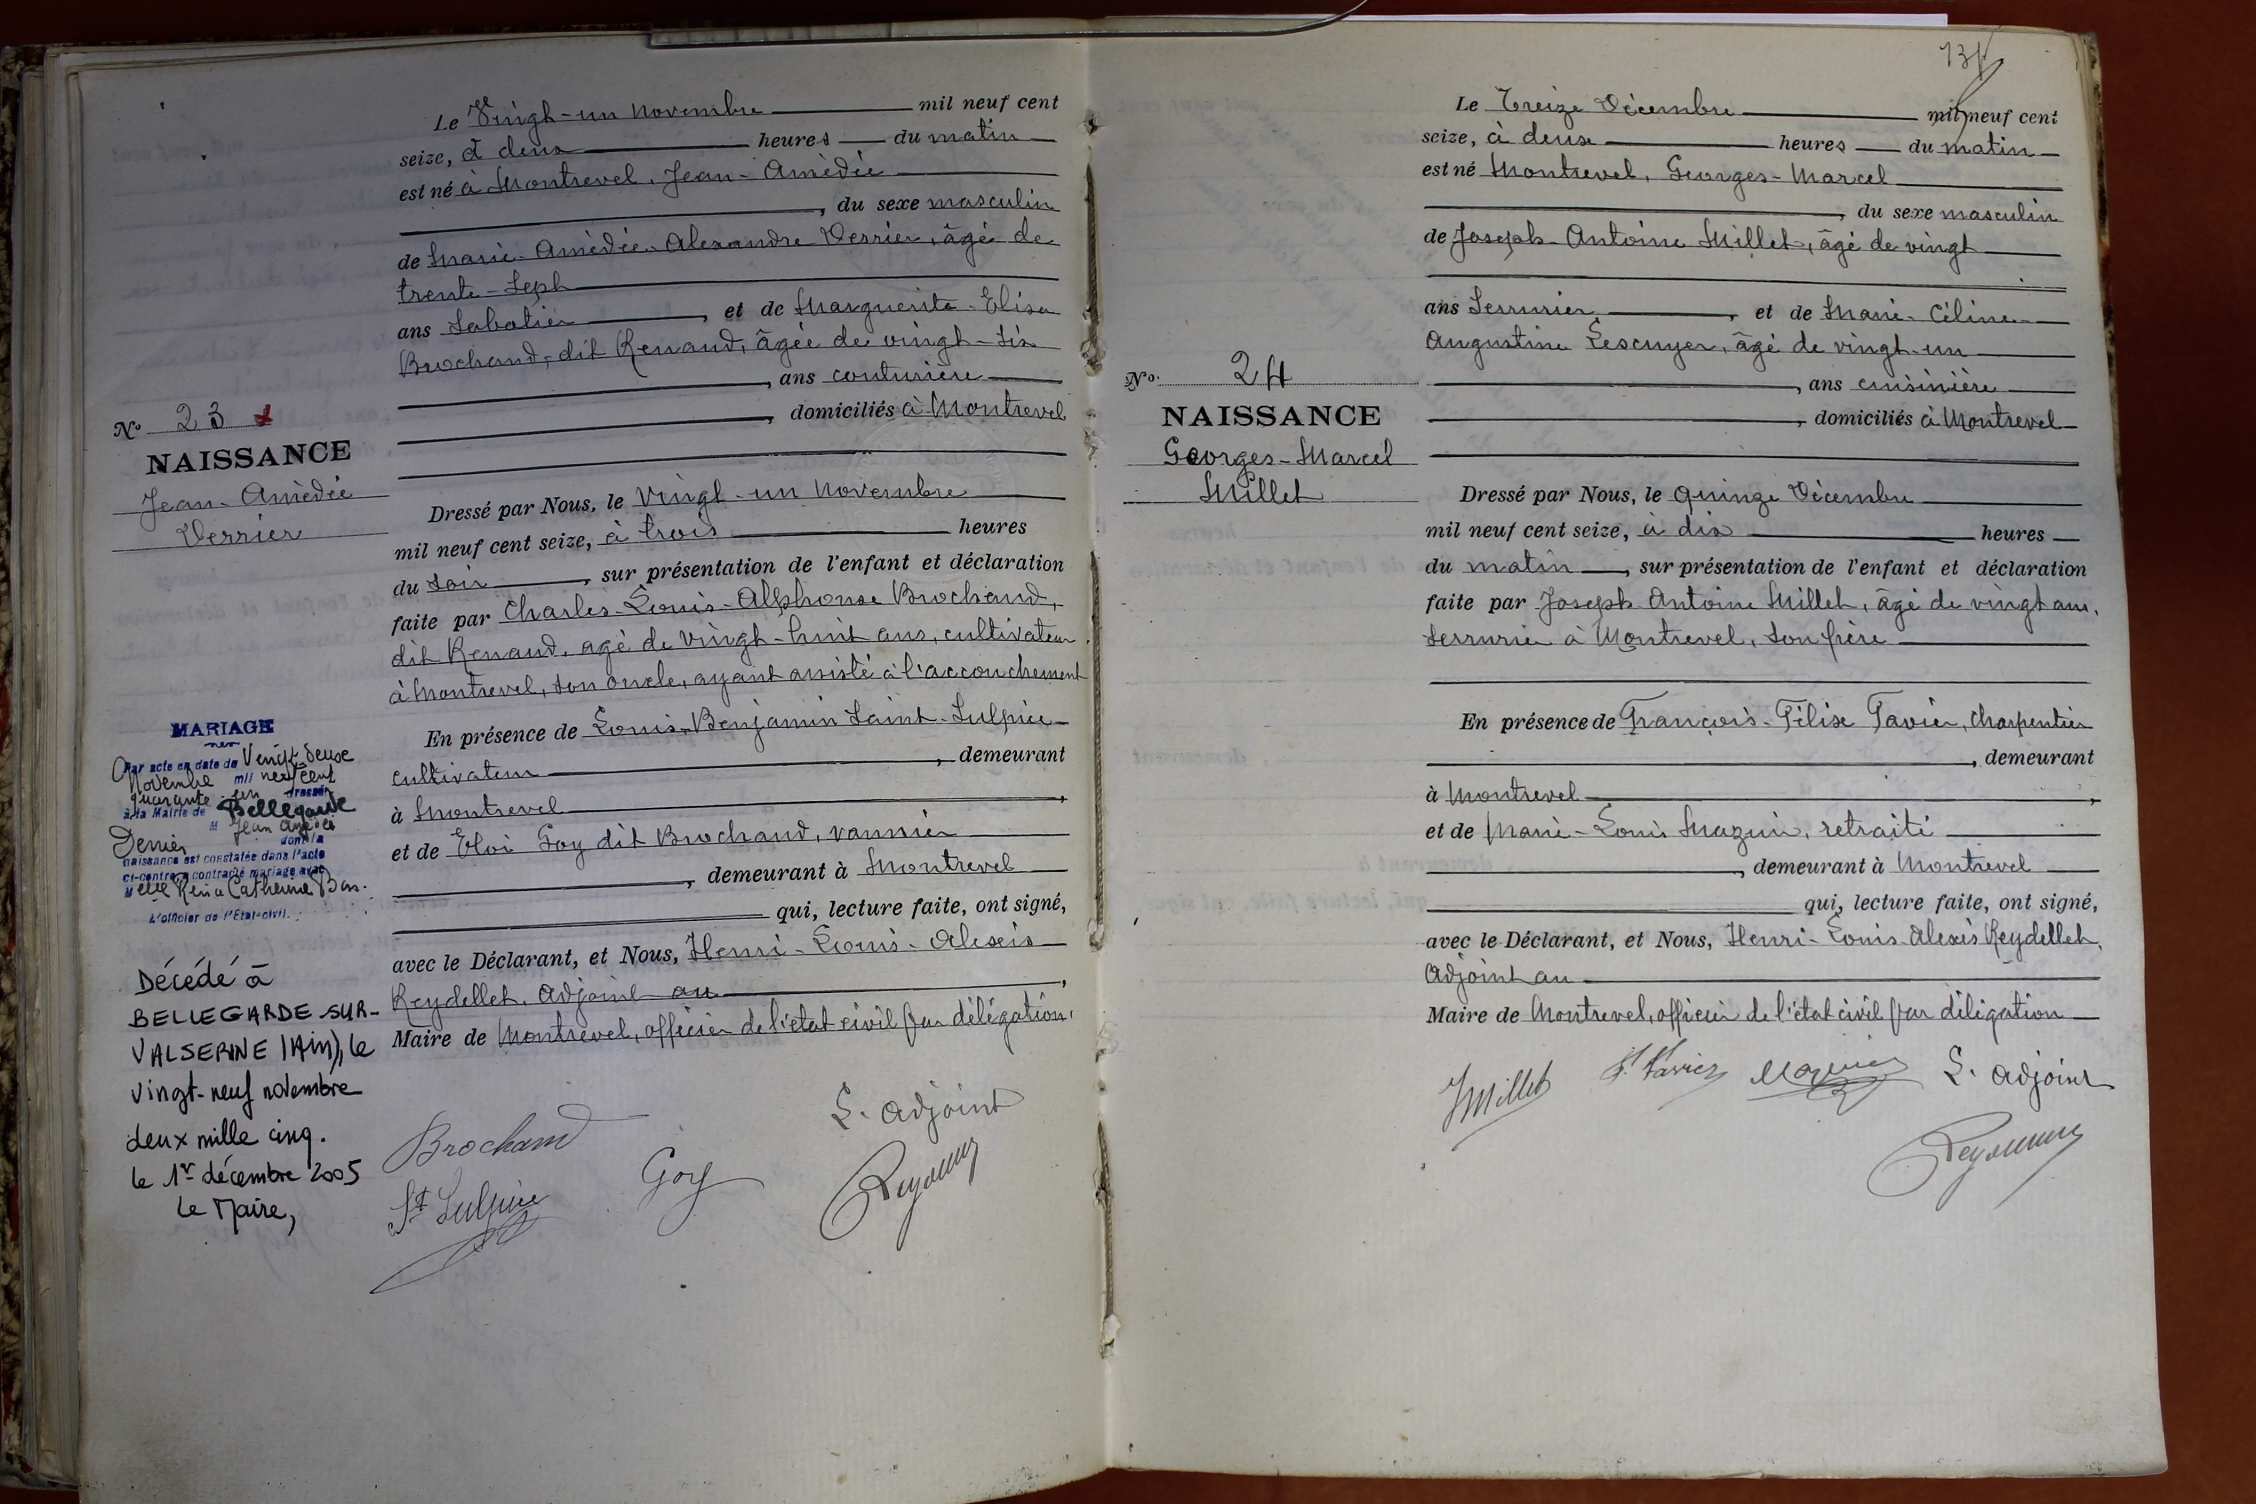 Le Vingt-un Novembre mil neuf cent
seize, à deux heures du matin
est né à Montrevel, Jean-Amédée
, du sexe masculin
de Marie-Amédée-Alexandre Verrier, âgé de
trente-sept
ans Sabotier, et de Marguerite-Elisa
Brochand, dit Renaud, âgée de vingt-six
, ans couturière
, domiciliés à Montrevel
No 23
NAISSANCE
Jean-Amédée
Verrier
Dressé par Nous, le vingt-un novembre
mil neuf cent seize, à trois heures
du soir, sur présentation de l'enfant et déclaration
faite par Charles-Louis-Alphonse Brochand,
dit Renaud, agé de vingt-huit ans, cultivateur
à Montrevel, son oncle, ayant assisté à l'accouchement
En présence de Louis-Benjamin Saint-Sulpice
cultivateur, demeurant
à Montrevel,
et de Eloi Goy dit Brochand, vannier
, demeurant à Montrevel
qui, lecture faite, ont signé,
avec le Déclarant, et Nous, Henri-Louis-Alexis
Reydellet, Adjoint au,
Maire de Montrevel, officier de l'état civil par délégation.
MARIAGE
Par acte en date du Vingt deux
Novembre mil neuf cent
quarante un dressé
à la Mairie de Bellegarde
M Jean Amédée
Verrier dont la
naissance est constatée dans l'acte
ci-contre a contracté mariage avec
Melle Rina Catherine
L'officier de l'Etat-civil.
Décédé à
BELLEGARDE-SUR-
VALSERINE (Ain), le
vingt-neuf novembre
deux mille cinq.
le 1er décembre 2005
Le Maire,
Brochand
L. adjoint
Goy
St Sulpice
131
Le Treize Décembre mil neuf cent
seize, à deux heures du matin
est né Montrevel, Georges-Marcel
, du sexe masculin
de Joseph-Antoine Millet, âgé de vingt
ans Serrurier, et de Marie-Céline-
Augustine Lescuyer, âgé de vingt-un
, ans cuisinière
, domiciliés à Montrevel
No. 24
NAISSANCE
Georges-Marcel
Millet
Dressé par Nous, le quinze Décembre
mil neuf cent seize, à dix heures
du matin, sur présentation de l'enfant et déclaration
faite par Joseph-Antoine Millet, âgé de vingt ans,
serrurier à Montrevel, son père
En présence de François-Félix Favier, charpentier
, demeurant
à Montrevel,
et de Marie-Louis Mazuir, retraité
, demeurant à Montrevel
qui, lecture faite, ont signé,
avec le Déclarant, et Nous, Henri-Louis-Alexis Reydellet,
Adjoint au
Maire de Montrevel, officier de l'état civil par délégation
JMillet F. Favier Mazuir L. adjoint